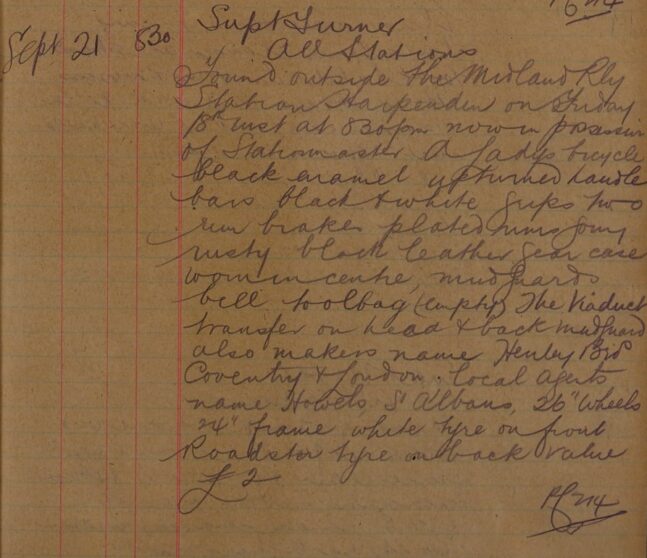 PC 214
Sept 21 830 Supt Turner
All Stations
Found outside the Midland Rly
Station Harpenden on Friday
18th inst at 830pm now in possession
of Stationmaster A Ladys bicycle
black enamel upturned handle
bars black & white grips two
rim brakes plated rims going
rusty black leather gear case
worn in centre, mudguards
bell toolbag (empty) The Viaduct
transfer on head & back mudguard
also makers name Henley Bros
Coventry & London. local agents
name Howels St Albans, 26" wheels
24" frame white tyre on front
Roadster tyre on back value
£2
PC 214